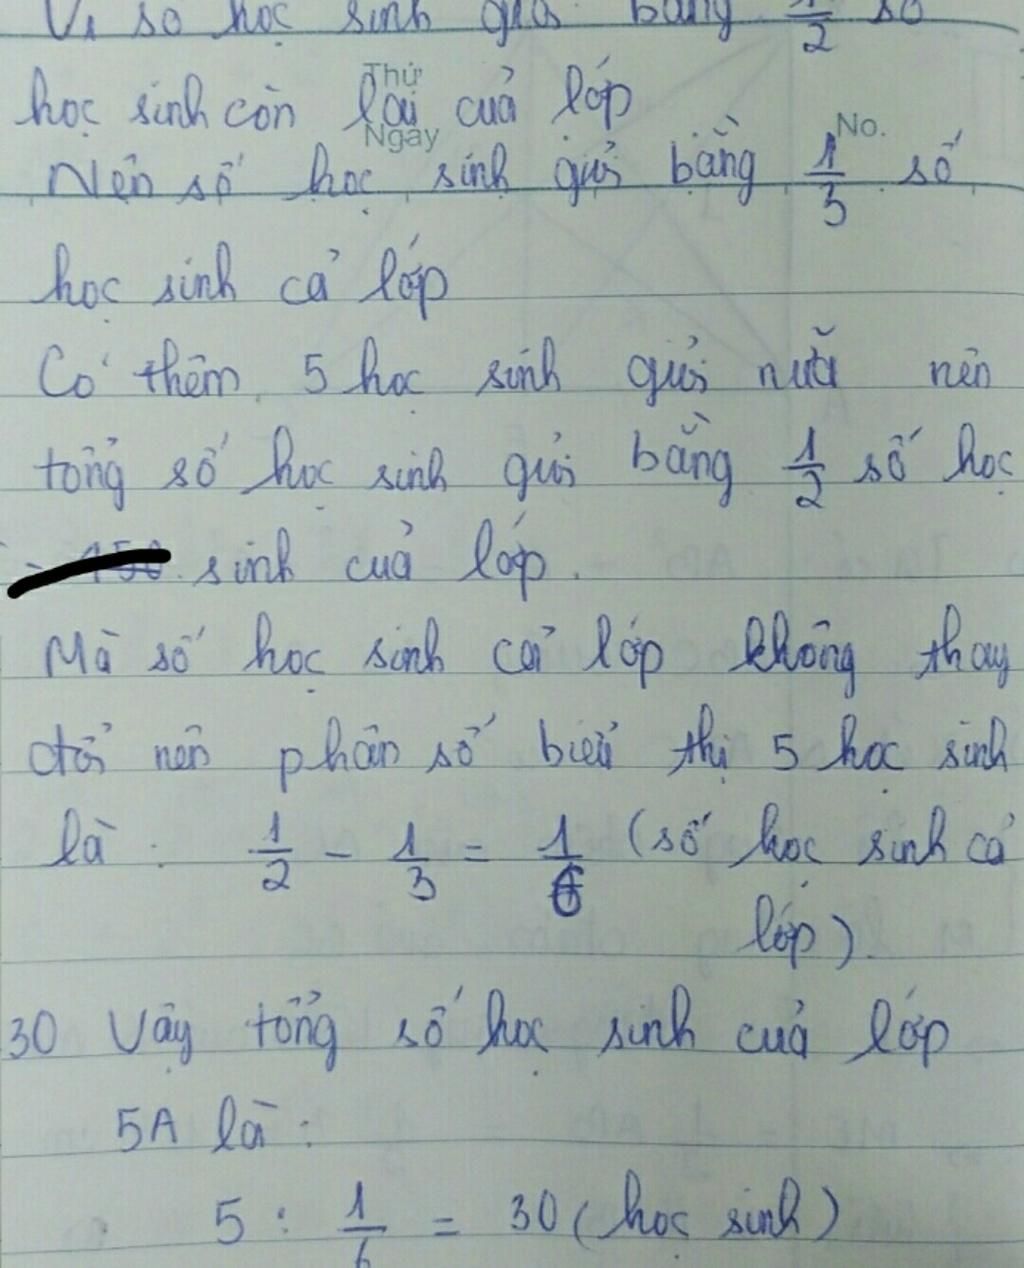 Vì số học sinh giỏi bằng 1/2 số
Thứ
học sinh còn lại của lớp
Ngày No.
Nên số học sinh giỏi bằng 1/3 số
học sinh cả lớp
Có thêm 5 học sinh giỏi nữa nên
tổng số học sinh giỏi bằng 1/2 số học
sinh của lớp.
Mà số học sinh cả lớp không thay
đổi nên phân số biểu thị 5 học sinh
là : 1/2 - 1/3 = 1/6 (số học sinh cả
lớp)
30 Vậy tổng số học sinh của lớp
5A là :
5 : 1/6 = 30 (học sinh)